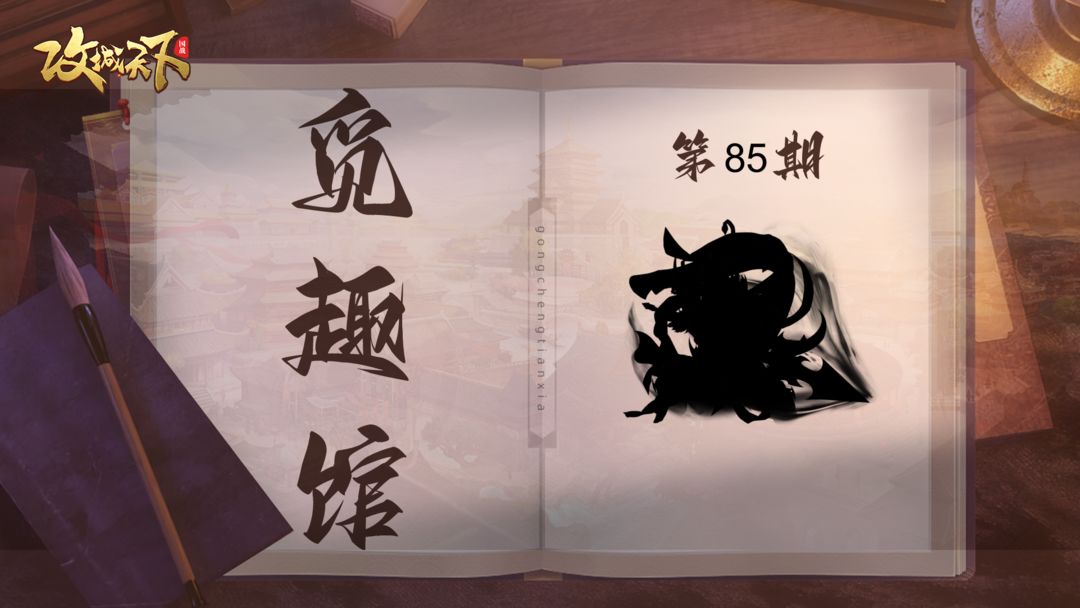 攻城天下
国战
觅趣馆
gongchengtianxia
第85期